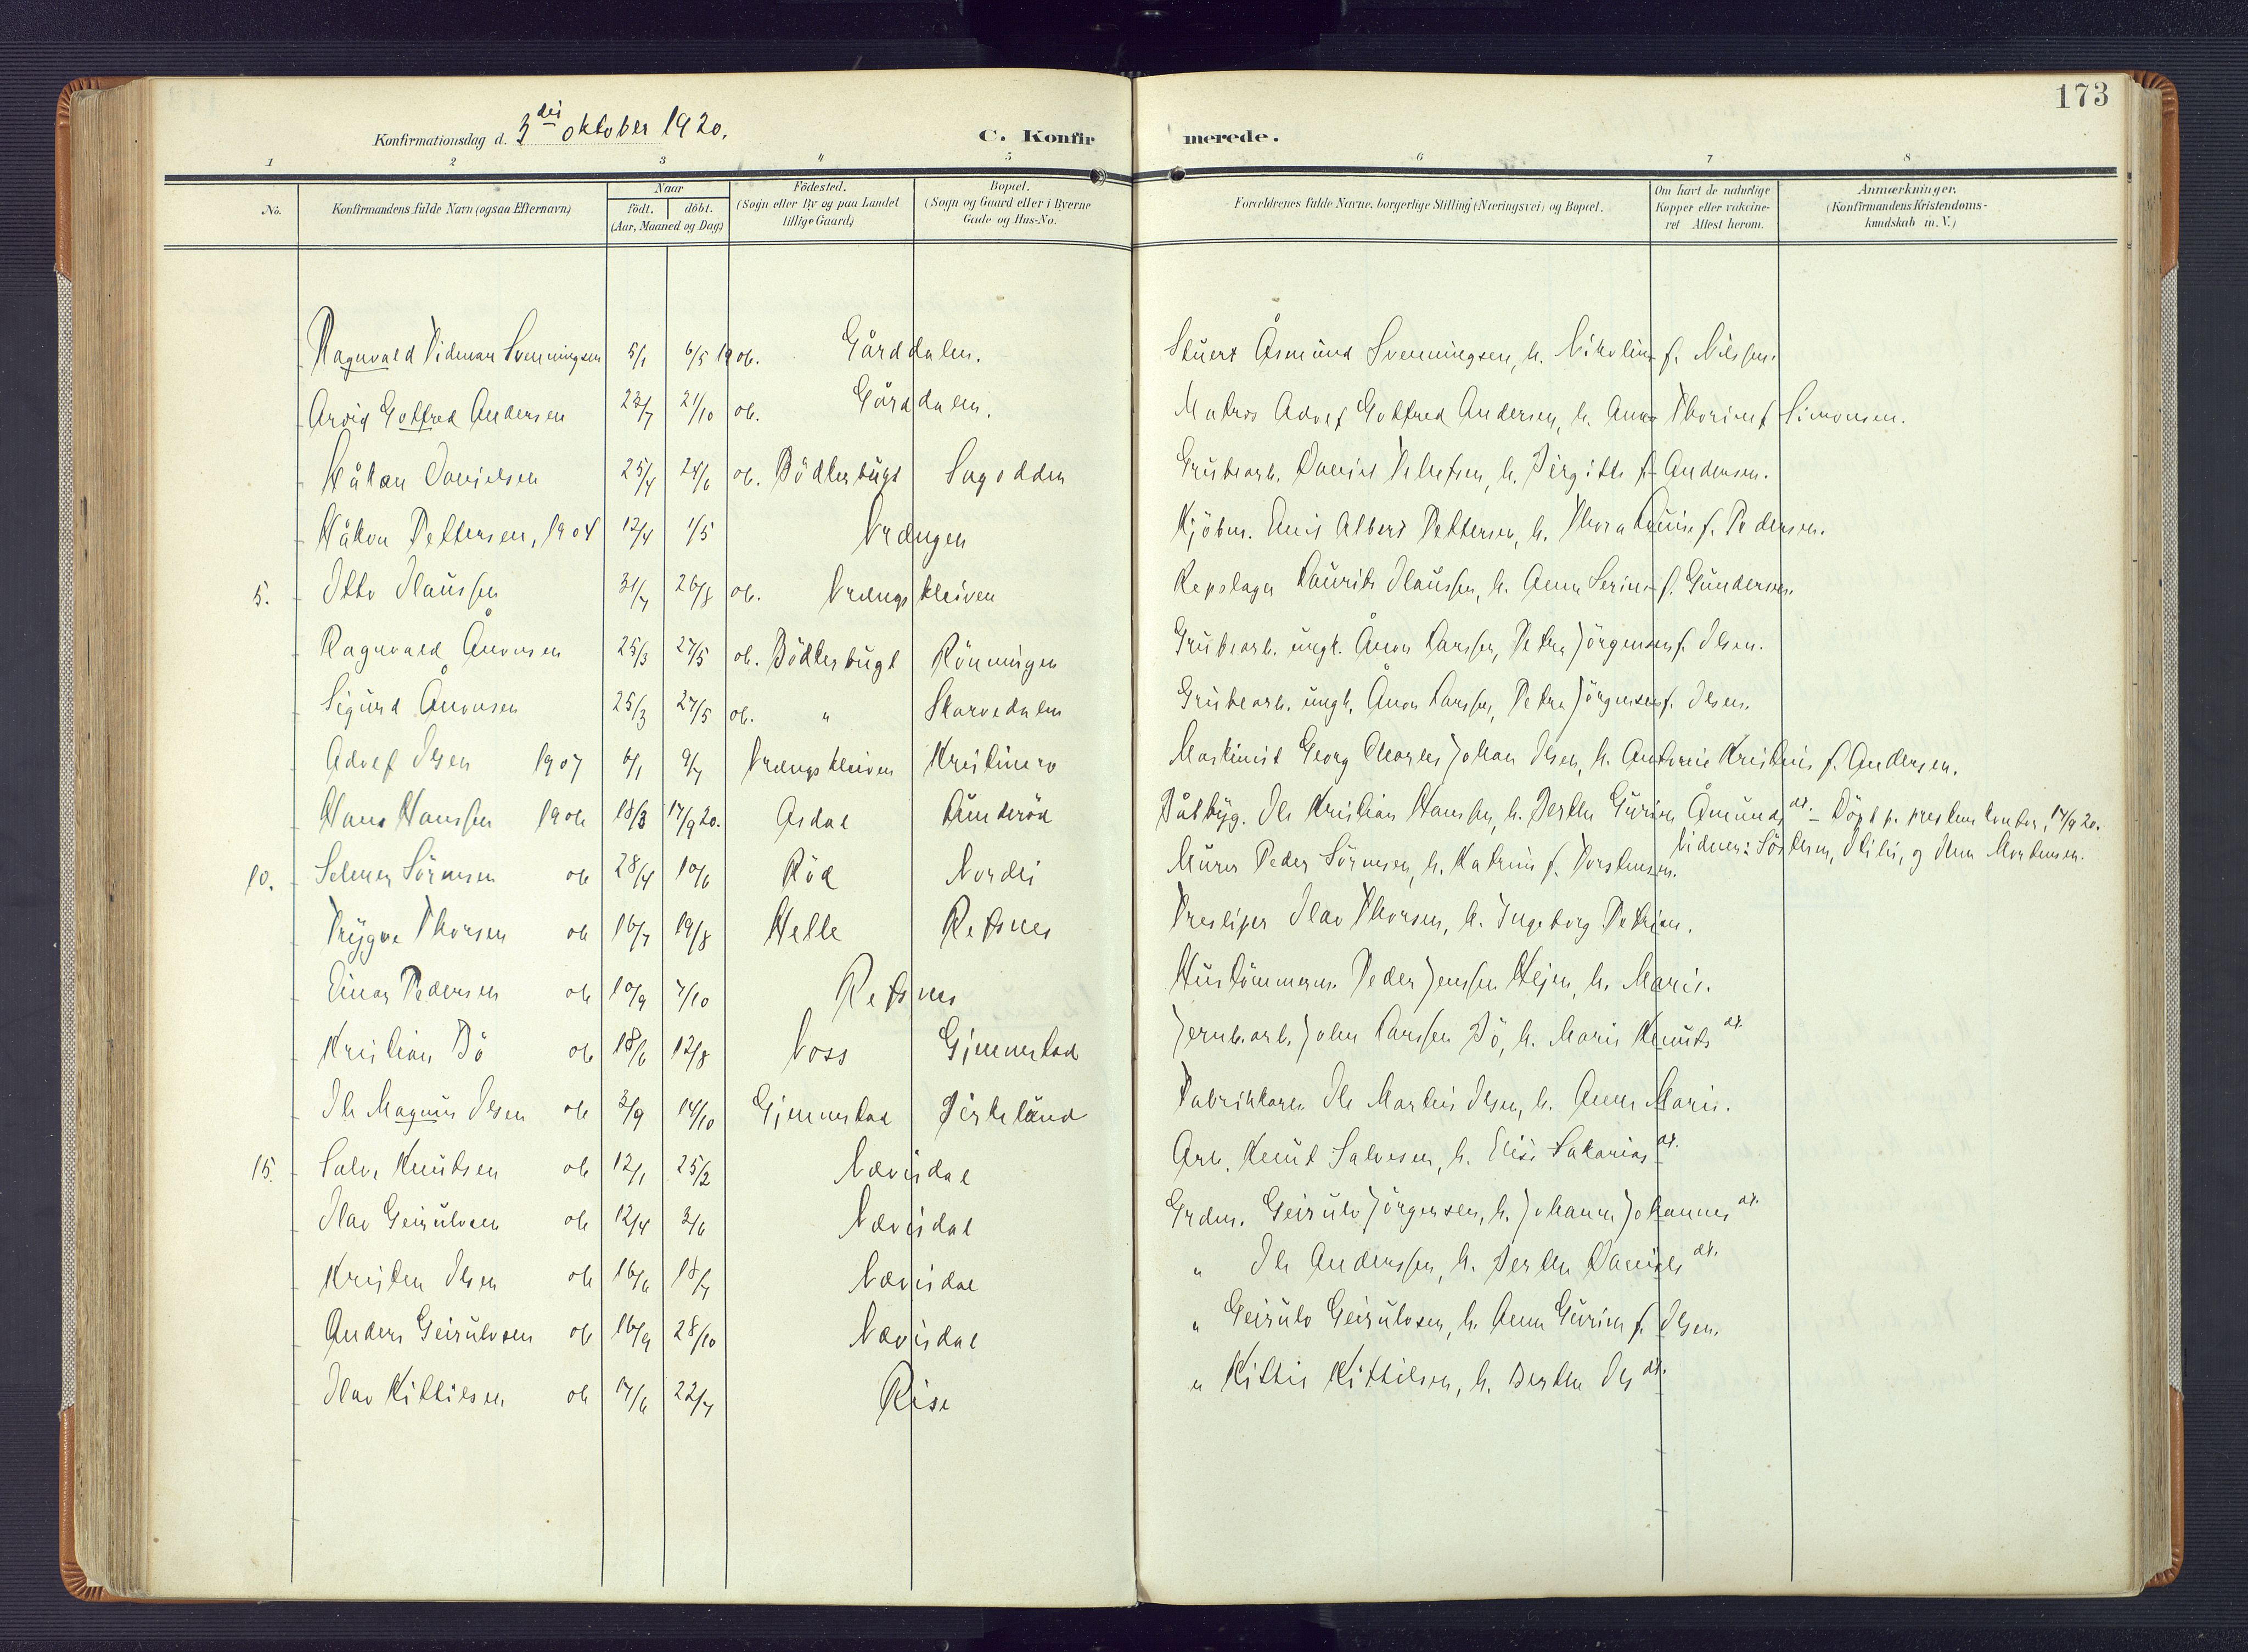 173
Konfirmationsdag d. 3 dei oktober 1920.
C. Konfirmerede.
1 2 3 4 5 6 7 8
No.
Konfirmandens fulde Navn (ogsaa Efternavn)
Naar
födt. döbt.
(Aar, Maaned og Dag)
Födested.
(Sogn eller By og paa Landet
tillige Gaard)
Bopæl.
(Sogn og Gaard eller i Byerne
Gade og Hus-No.
Forældrenes fulde Navne, borgerlige Stilling (Næringsvei) og Bopæl.
Om havt de naturlige
Kopper eller vakcine-
ret Attest herom.
Anmærkninger.
(Konfirmandens Kristendoms-
kundskab m. V.)
Ragnvald Vidman Svenningsen 5/1 6/5 1906. Gårddalen. Stuert Åsmund Svenningsen, h. Nikoline f. Nilssen.
Arvid Gotfred Andersen 22/7 21/10 06. Gårddalen. Matros Adolf Gotfred Andersen, h. Anna Thorine f. Simonsen.
Håkon Danielsen 25/4 24/6 06. Bödkerbugt Sagodden Grubearb. Daniel h. Birgitte f. Andersen.
Håkon Pettersen, 1904 12/4 1/5 Vrængen Kjöbm. Emil Albert Pettersen, h. Thora Louise f. Pedersen.
5. Otto Olaussen 31/7 26/8 06. Vrængskleiven Repslager Laurits Olaussen, h. Anna Serine f. Gundersen.
Ragnvald Ånonsen 25/3 27/5 06. Bödkerbugt Rönningen Grubearb. ungk. Ånon Larssen, Petra Jörgensen f. Olsen.
Sigurd Ånonsen 25/3 27/5 06. " Skarvedalen Grubearb. ungk. Ånon Larssen, Petra Jörgensen f. Olsen.
Adolf Olsen 1907 6/1 9/7 Vrængskleiven Kristinero Maskinist Georg Charles Johan Olsen, h. Antonie Kristine f. Andersen.
Hans Hanssen 1906 18/3 17/9 20. Asdal Lunderöd Båtbyg. Ole Kristian Hanssen, h. Berthe Gurine Åmunds dt. – Döpt p. prestens kontor, 17/9 20.
Vidner: og Mortensen.
10. Selmer Sörensen 06 28/4 10/6 Röd Nordli Murer Peder Sörensen, h. Katrine f. Torstensen.
Trygve Thorsen 06 16/7 19/8 Helle Refsnes Træsliper Olav Thorsen, h. Ingeborg Petrine.
Einar Pedersen 06 10/9 7/10 Refsnes Hustömmerm. Peder Jenssen Hejen, h. Marie.
Kristian Bö 06 18/6 12/8 Voss Gjennestad Jernb.arb. John Larssen Bö, h. Marie Knuts dt.
Ole Magnus Olsen 06 3/9 14/10 Gjennestad Birkeland Fabrikkarb. Ole Martin Olsen, h. Anna Marie.
15. Salve Knutsen 06 12/1 25/2 Nævisdal Arb. Knut Salvesen, h. Elise Sakarias dt.
Olav Geirulvsen 06 12/4 3/6 Nævisdal Grdm. Geirulv Jörgensen, h. Johanne Johannes dt.
Kristen Olsen 06 16/6 18/7 Nævisdal " Ole Anderssen, h. Berthe Daniels dt.
Anders Geirulvsen 06 16/9 28/10 Nævisdal " Geirulv Geirulvsen, h. Anna Gurine f. Olsen.
Olav Kittilsen 06 7/6 22/7 Rise " Kittil Kittilsen, h. Berthe Ols dt.